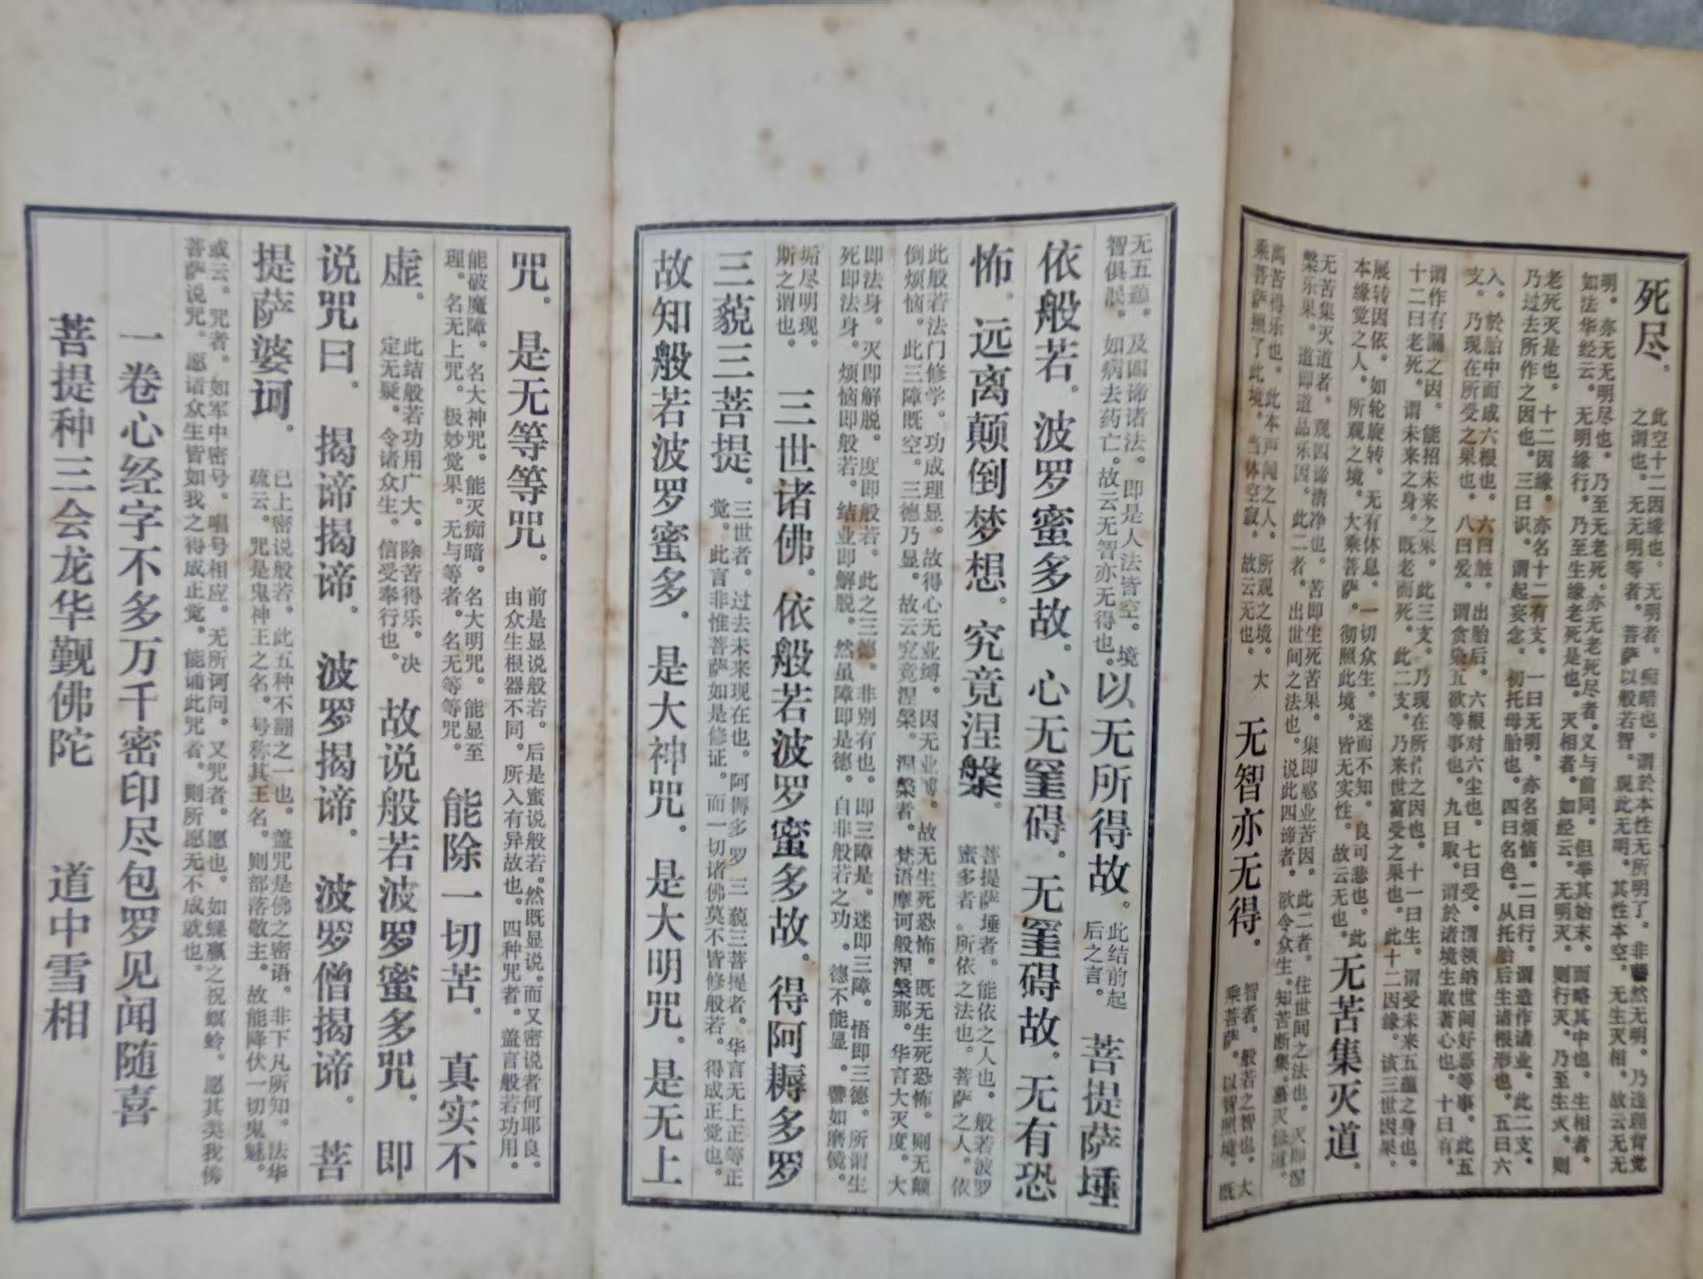 死尽。
此空十二因缘也。无明者。痴暗也。谓於本性无所明了。非瞢然无明。乃违理背觉
之谓也。无无明等者。菩萨以般若智。观此无明。其性本空。无生灭相。故云无无
明。亦无无明尽也。乃至无老死。亦无老死尽者。义与前同。但举其始末。而略其中也。生相者。
如法华经云。无明缘行。乃至生缘老死是也。灭相者。如经云。无明灭。则行灭。乃至生灭。则
老死灭是也。十二因缘。亦名十二有支。一曰无明。亦名烦恼。二曰行。谓造作诸业。此二支。
乃过去所作之因也。三曰识。谓起妄念。初托母胎也。四曰名色。从托胎后生诸根形也。五曰六
入。於胎中而成六根也。六曰触。出胎后。六根对六尘也。七曰受。谓领纳世间好恶等事。此五
支。乃现在所受之果也。八曰爱。谓贪染五欲等事也。九曰取。谓於诸境生取著心也。十曰有。
谓作有漏之因。能招未来之果。此三支。乃现在所作之因也。十一曰生。谓受未来五蕴之身也。
十二曰老死。谓未来之身。既老而死。此二支。乃来世当受之果也。此十二因缘。该三世因果。
展转因依。如轮旋转。无有休息。一切众生。迷而不知。良可悲也。此
本缘觉之人。所观之境。大乘菩萨。彻照此境。皆无实性。故云无也。
无苦集灭道。
无苦集灭道者。观四谛清净也。苦即生死苦果。集即惑业苦因。此二者。住世间之法也。灭即涅
槃乐果。道即道品乐因。此二者。出世间之法也。说此四谛者。欲令众生。知苦断集。慕灭修道。
离苦得乐也。此本声闻之人。所观之境。大
乘菩萨照了此境。当体空寂。故云无也。
无智亦无得。
智者。般若之智也。大
乘菩萨。以智照境。既
无五蕴。及四谛诸法。即是人法皆空。境
智俱泯。如病去药亡。故云无智亦无得也。
以无所得故。
此结前起
后之言。
菩提萨埵
依般若。波罗蜜多故。心无罣碍。无罣碍故。无有恐
怖。远离颠倒梦想。究竟涅槃。
菩提萨埵者。能依之人也。般若波罗
蜜多者。所依之法也。菩萨之人。依
此般若法门修学。功成理显。故得心无业缚。因无业缚。故无生死恐怖。既无生死恐怖。则无颠
倒烦恼。此三障既空。三德乃显。故云究竟涅槃。涅槃者。梵语摩诃般涅槃那。华言大灭度。大
即法身。灭即解脱。度即般若。此之三德。非别有也。即三障是。迷即三障。悟即三德。所谓生
死即法身。烦恼即般若。结业即解脱。然虽障即是德。自非般若之功。德不能显。譬如磨镜。
垢尽明现。
斯之谓也。
三世诸佛。依般若波罗蜜多故。得阿耨多罗
三藐三菩提。
三世者。过去未来现在也。阿耨多罗三藐三菩提者。华言无上正等正
觉。此言非惟菩萨如是修证。而一切诸佛莫不皆修般若。得成正觉也。
故知般若波罗蜜多。是大神咒。是大明咒。是无上
咒。是无等等咒。
前是显说般若。后是蜜说般若。然既显说。而又密说者何耶良。
由众生根器不同。所入有异故也。四种咒者。盖言般若功用。
能破魔障。名大神咒。能灭痴暗。名大明咒。能显至
理。名无上咒。极妙觉果。无与等者。名无等等咒。
能除一切苦。真实不
虚。
此结般若功用广大。除苦得乐。决
定无疑。令诸众生。信受奉行也。
故说般若波罗蜜多咒。即
说咒曰。揭谛揭谛。波罗揭谛。波罗僧揭谛。菩
提萨婆诃。
已上密说般若。此五种不翻之一也。盖咒是佛之密语。非下凡所知。法华
疏云。咒是鬼神王之名。号称其王名。则部落敬主。故能降伏一切鬼魅。
或云。咒者。如军中密号。唱号相应。无所诃问。又咒者。愿也。如蜾蠃之祝螟蛉。愿其类我佛
菩萨说咒。愿诸众生皆如我之得成正觉。能诵此咒者。则所愿无不成就也。
一卷心经字不多万千密印尽包罗见闻随喜
菩提种三会龙华觐佛陀 道中雪相